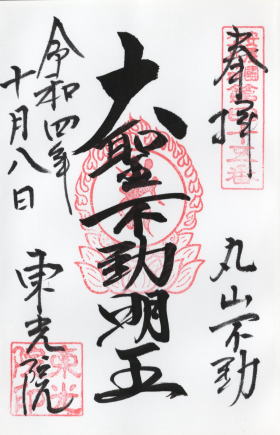 奉拝
丸山不動
大聖不動明王
令和四年
十月八日
東光院